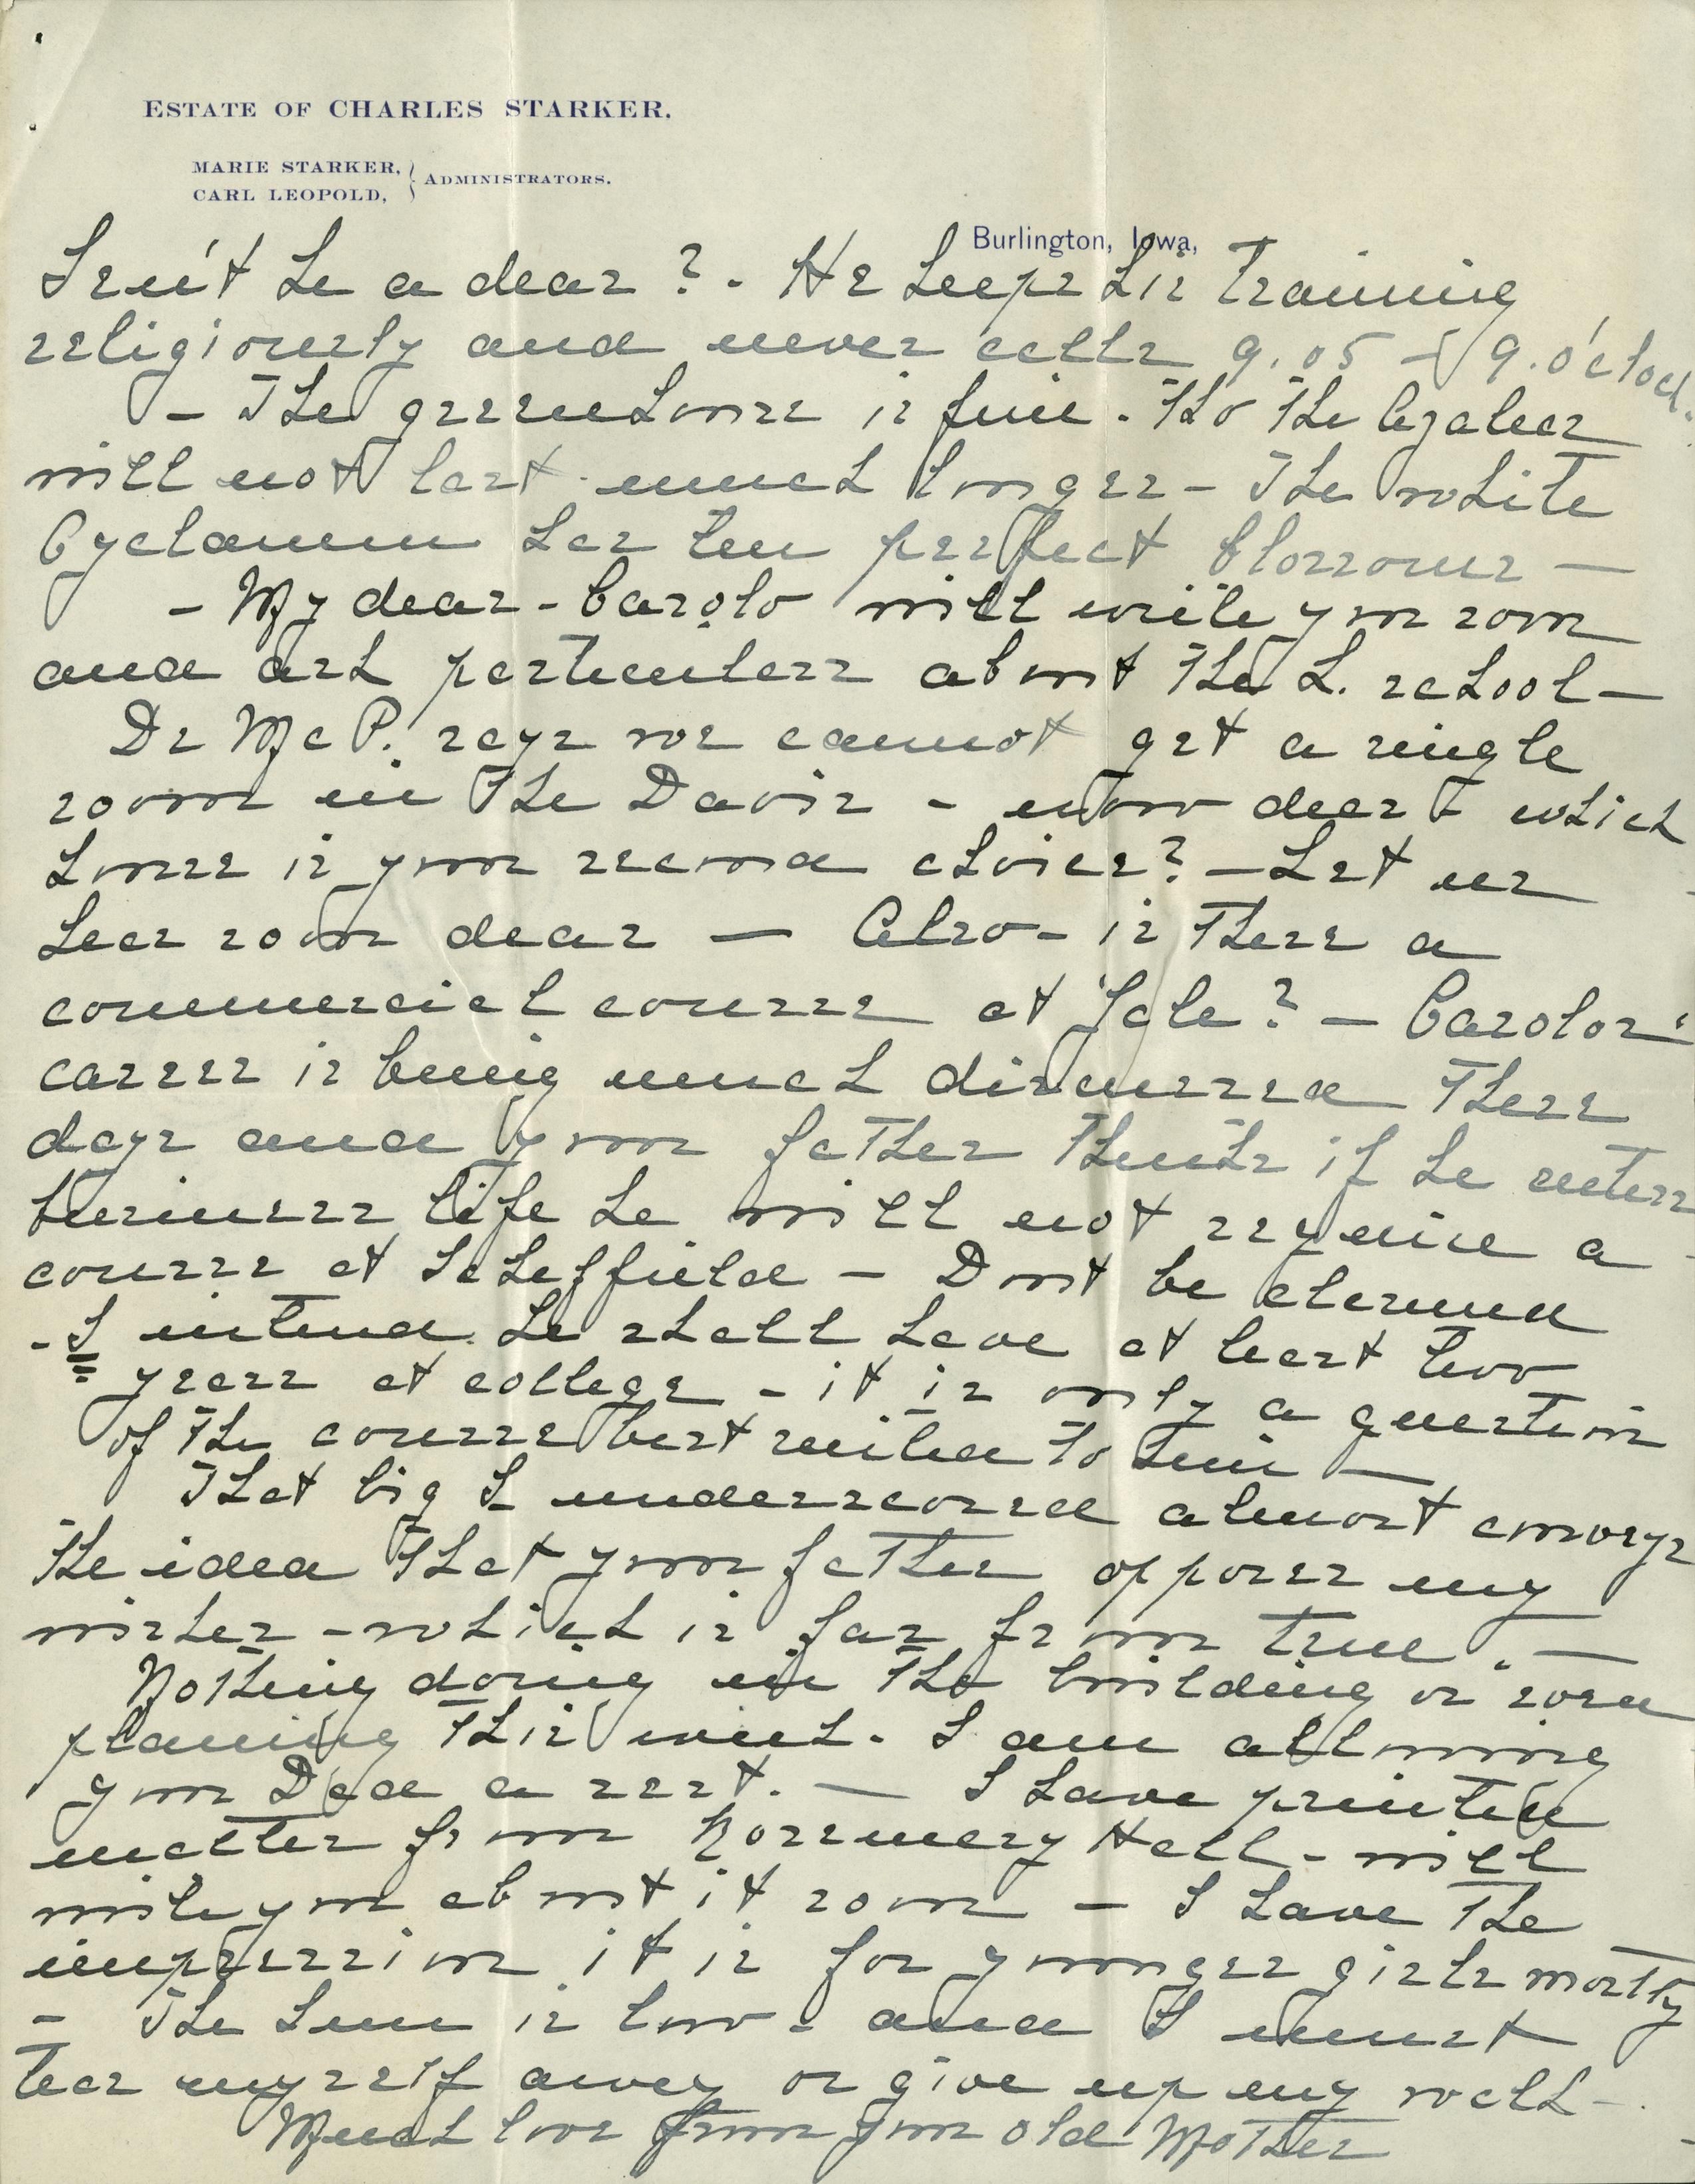 ESTATE OF CHARLES STARKER.
MARIE STARKER,
CARL LEOPOLD, } ADMINISTRATORS.
Burlington, Iowa,
Isn't he a dear? - He keeps his training
religiously and never eats 9.05 - 9. o'clock.
- The greenhouse is fine. Tho the Azaleas
will not last much longer - The white
Cyclamen has ten perfect blossoms -
- My dear - Carolo will write you soon
and ask particulars about the L. school -
Dr McP. says we cannot get a single
room in the Davis - now dear - which
house is your second choice? - Let us
hear soon dear - Also - is there a
commercial course at Yale? - Carolos'
career is being much discussed these
days and your father thinks if he enters
business life he will not require a
course at Scheffield - Dont be alarmed
- I intend he shall have at least two
years at college - it is only a question
of the course best suited to him -
That big I underscored almost conveys
the idea that your father opposes my
wishes - which is far from true. -
Nothing doing in the building or room
planning this week. I am allowing
your Dad a rest. - I have printed
matter from Rosemary Hall - will
write you about it soon - I have the
impression it is for younger girls mostly
- The sun is low - and I must
tear myself away or give up my walk -
Much love from your old Mother